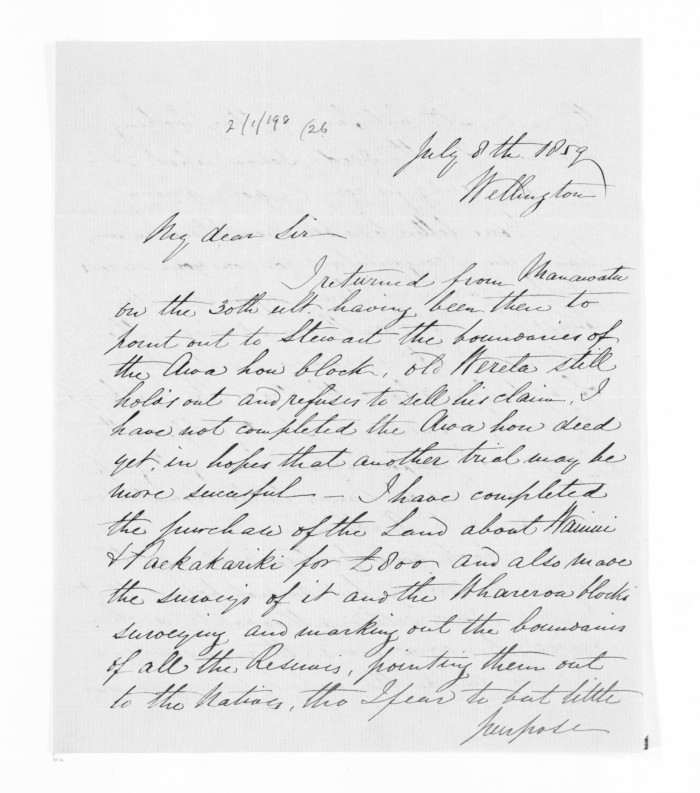 2/1/198 /26
July 8th 1859
Wellington
My dear Sir
I returned from Manawatu
on the 30th ult. having been then to
point out to Stewart the boundaries of
the Awa hou block, old Wereta still
holds out and refuses to sell his claim, I
have not completed the Awa hou deed
yet, in hopes that another trial may be
more sucessful — I have completed
the purchase of the Land about Wainui
& Paekakariki for £800 and also made
the surveys of it and the Wharerou blocks
surveying and marking out the boundaries
of all the Reserves, pointing them out
to the Natives, tho I fear to but little
purpose